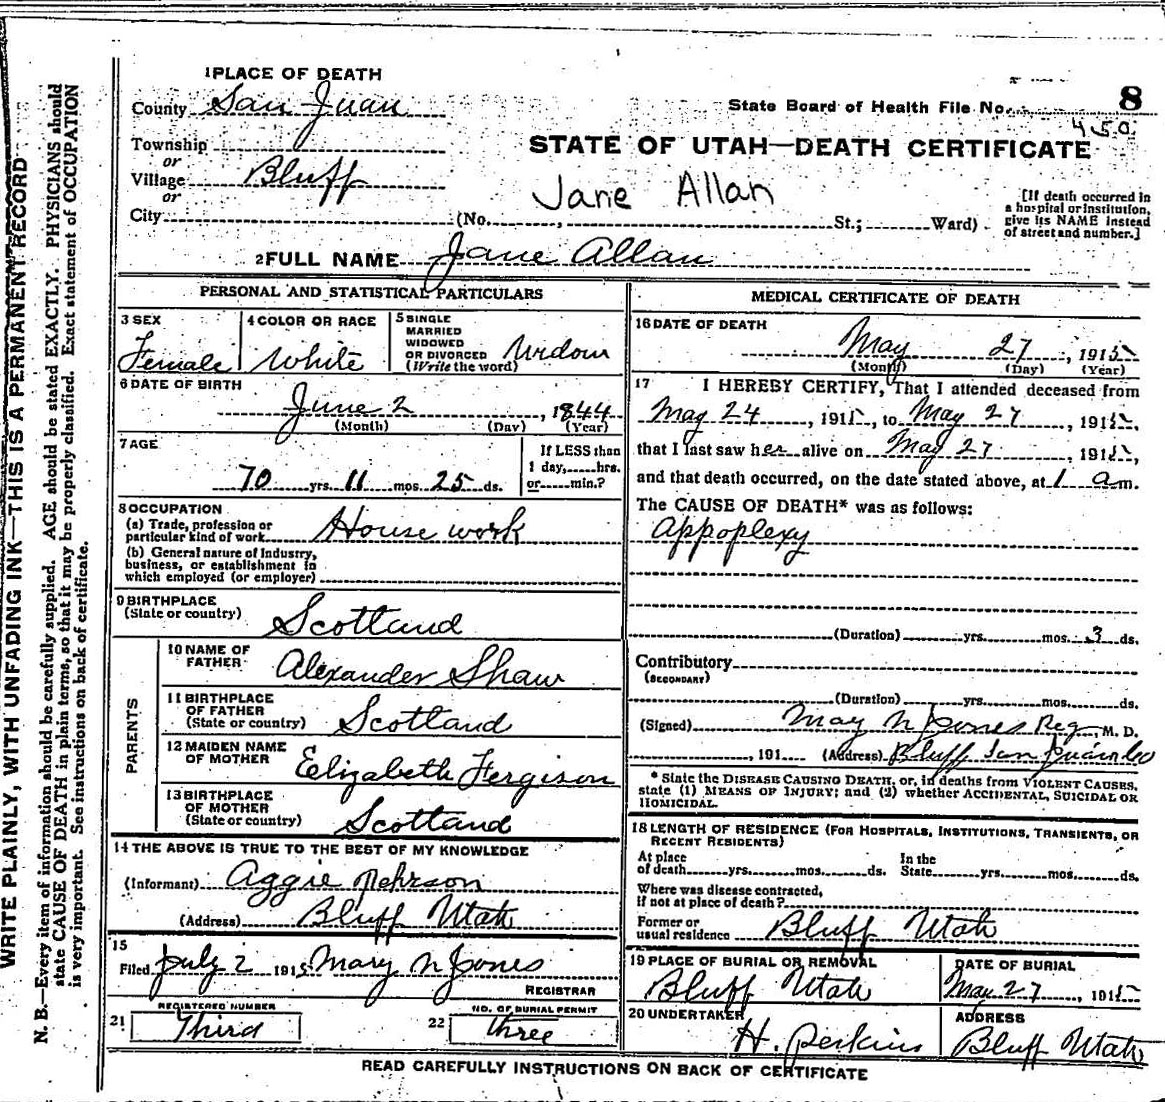 WRITE PLAINLY, WITH UNFADING INK—THIS IS A PERMANENT RECORD
N. B.—Every item of information should be carefully supplied. AGE should be stated EXACTLY. PHYSICIANS should
state CAUSE OF DEATH in plain terms, so that it may be properly classified. Exact statement of OCCUPATION
is very important. See instructions on back of certificate.
1 PLACE OF DEATH
County San Juan
State Board of Health File No. 8
450
Township
or
Village Bluff
or
City
STATE OF UTAH—DEATH CERTIFICATE
Jane Allan
(No. , St.; Ward)
[If death occurred in
a hospital or institution,
give its NAME instead
of street and number.]
2 FULL NAME Jane Allan
PERSONAL AND STATISTICAL PARTICULARS
3 SEX
Female
4 COLOR OR RACE
White
5 SINGLE
MARRIED
WIDOWED
OR DIVORCED
(Write the word)
Widow
6 DATE OF BIRTH
June 2, 1844
(Month) (Day) (Year)
7 AGE
70 yrs. 11 mos. 25 ds.
If LESS than
1 day, hrs.
or min.?
8 OCCUPATION
(a) Trade, profession or
particular kind of work House work
(b) General nature of Industry,
business, or establishment in
which employed (or employer)
9 BIRTHPLACE
(State or country)
Scotland
PARENTS
10 NAME OF
FATHER Alexander Shaw
11 BIRTHPLACE
OF FATHER
(State or country) Scotland
12 MAIDEN NAME
OF MOTHER Elizabeth Fergison
13 BIRTHPLACE
OF MOTHER
(State or country) Scotland
14 THE ABOVE IS TRUE TO THE BEST OF MY KNOWLEDGE
(Informant) Aggie Nehrson
(Address) Bluff Utah
15
Filed July 2 1915 Mary N Jones
REGISTRAR
REGISTERED NUMBER
21 Third
NO. OF BURIAL PERMIT
22 three
MEDICAL CERTIFICATE OF DEATH
16 DATE OF DEATH
May 27, 1915
(Month) (Day) (Year)
17 I HEREBY CERTIFY, That I attended deceased from
May 24, 1915, to May 27, 1915,
that I last saw her alive on May 27, 1915,
and that death occurred, on the date stated above, at 1 a m.
The CAUSE OF DEATH* was as follows:
Appoplexy
(Duration) yrs. mos. 3 ds.
Contributory
(SECONDARY)
(Duration) yrs. mos. ds.
(Signed) May N Jones Reg M. D.
, 191 (Address) Bluff San Juan Co
* State the DISEASE CAUSING DEATH, or, in deaths from VIOLENT CAUSES,
state (1) MEANS OF INJURY; and (2) whether ACCIDENTAL, SUICIDAL OR
HOMICIDAL.
18 LENGTH OF RESIDENCE (FOR HOSPITALS, INSTITUTIONS, TRANSIENTS, OR
RECENT RESIDENTS)
At place
of death yrs. mos. ds.
In the
State yrs. mos. ds.
Where was disease contracted,
if not at place of death?
Former or
usual residence Bluff Utah
19 PLACE OF BURIAL OR REMOVAL
Bluff Utah
DATE OF BURIAL
May 27, 1915
20 UNDERTAKER
H. Perkins
ADDRESS
Bluff Utah
READ CAREFULLY INSTRUCTIONS ON BACK OF CERTIFICATE